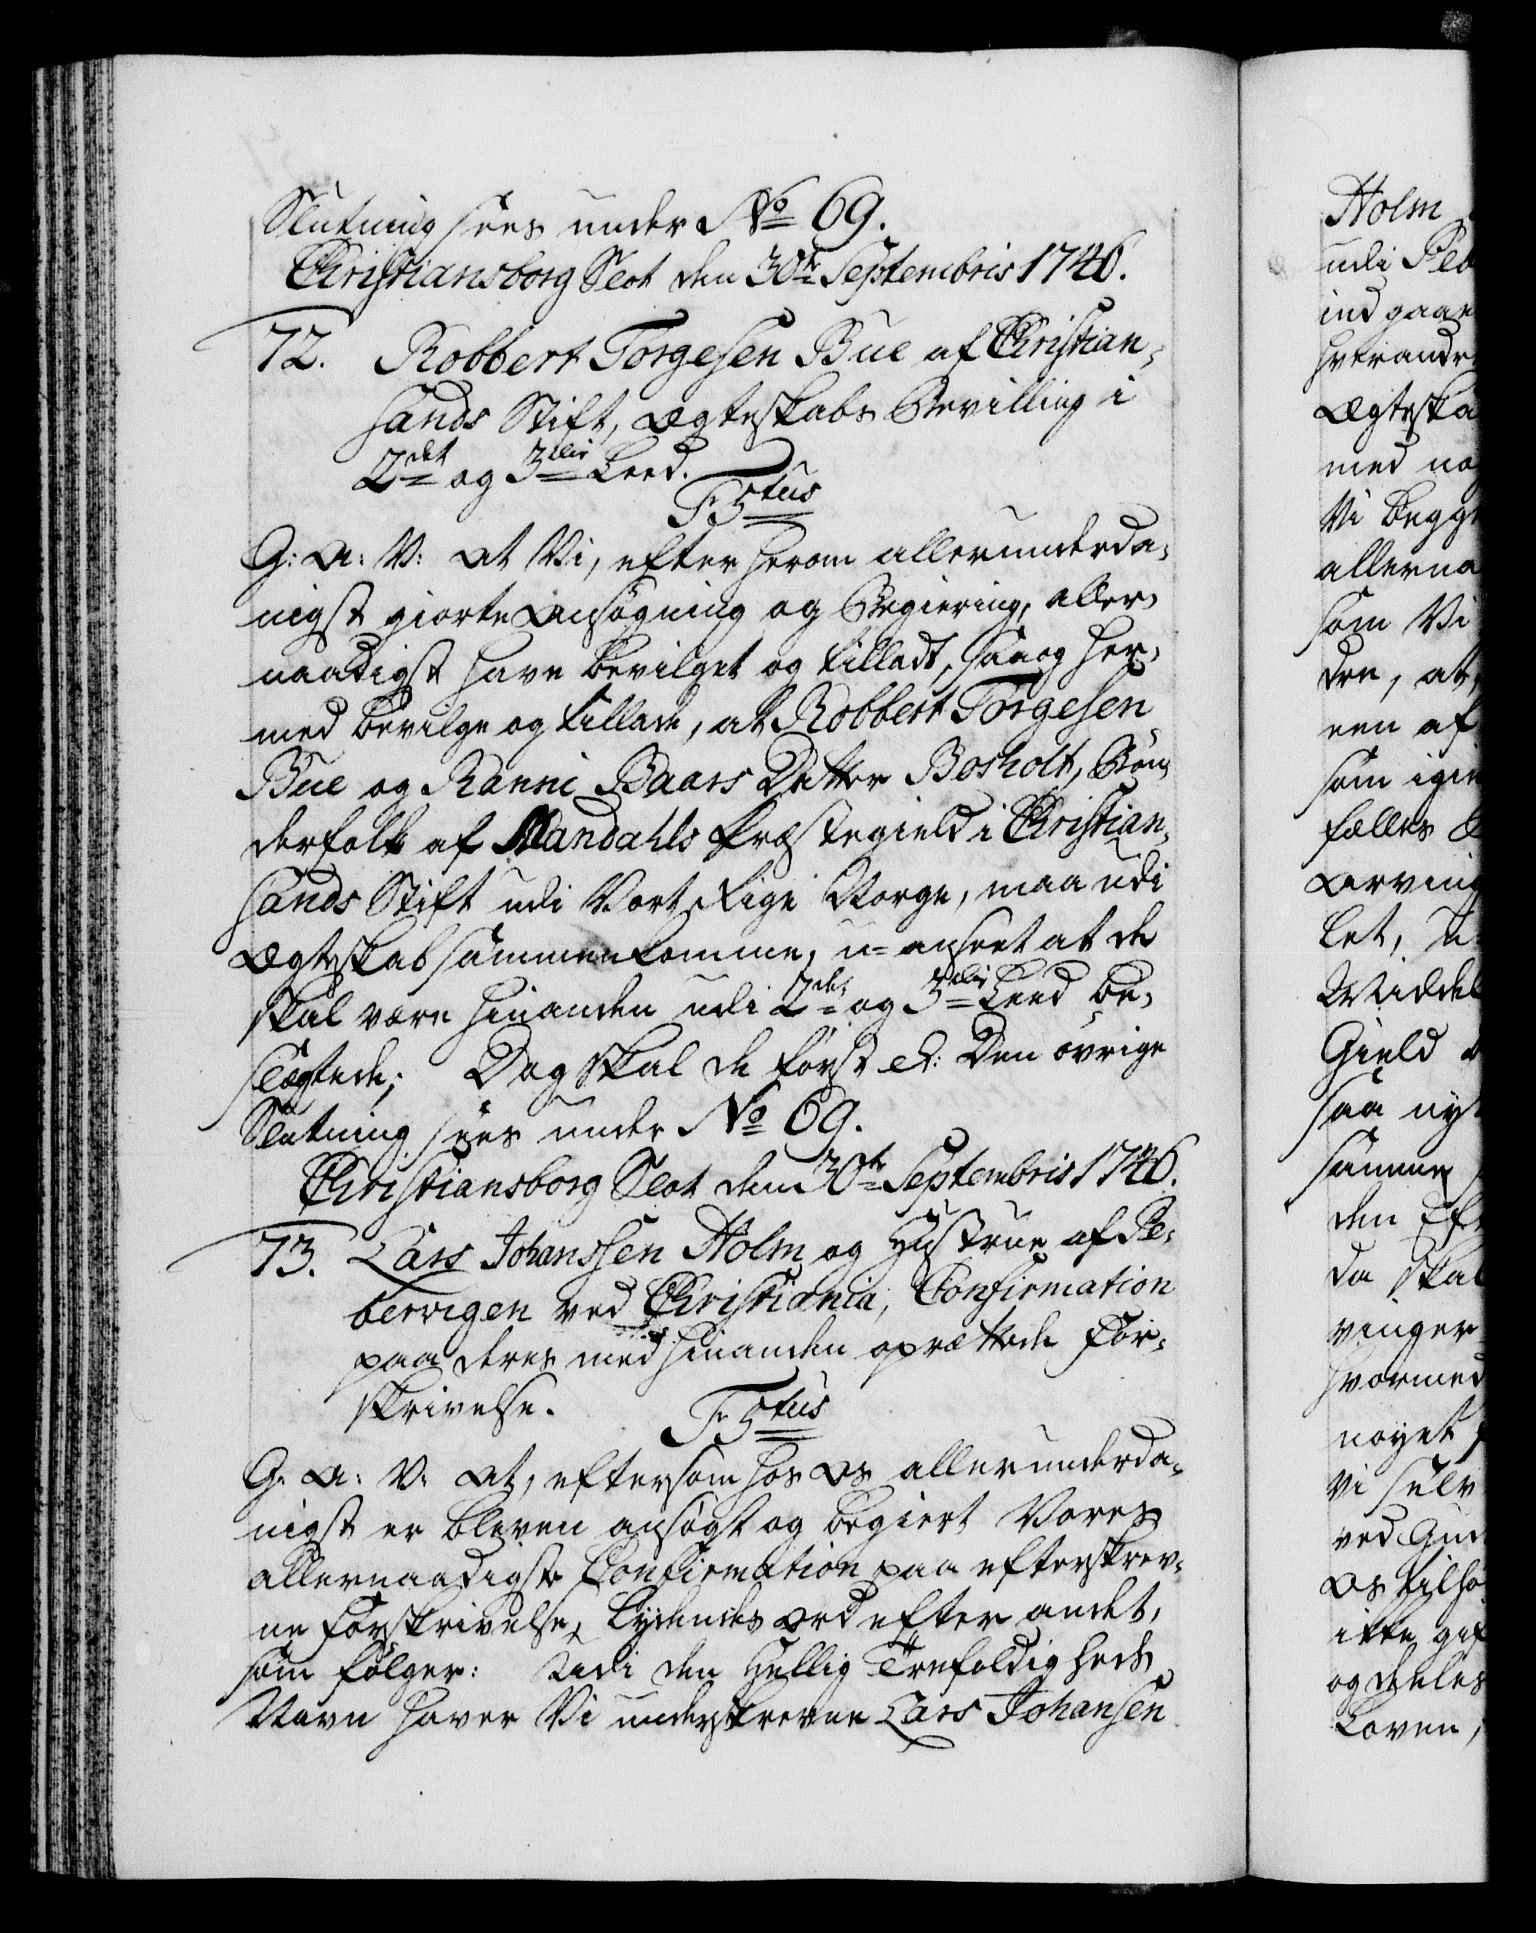 Slutning sees under No 69.
Christiansborg Slot den 30te Septembris 1746.
72. Robbert Torgesen Bue af Christian-
sands Stift, Ægteskabs Bevilling i
2det og 3die Leed.
F 5tus
G: A: V: At Vi, efter herom allerunderda-
nigst giorte Ansøgning og Begiering, aller-
naadigst have bevilget og tilladt, saa og her-
med bevilge og tillade, at Robbert Torgesen
Bue og Ranni Baars Datter Bosholt, Bøn-
derfolk af Mandahls Præstegield i Christian-
sands Stift udi Vort Rige Norge, maa udi
Ægteskab sammenkomme, u-anseet at de
skal være hinanden udi 2det og 3die Leed be-
slægtede; Dog skal de først &: Den øvrige
Slutning sees under No 69.
Christiansborg Slot den 30te Septembris 1746.
73. Lars Johanssen Holm og Hustrue af Pe-
bervigen ved Christiania, Confirmation
paa deres med hinanden oprættede For-
skrivelse.
F 5tus
G: A: V: At, eftersom hos Os allerunderda-
nigst er bleven ansøgt og begiert Vores
allernaadigste Confirmation paa efterskrev-
ne Forskrivelse, lydendes Ord efter andet,
som følger: Udi den Hellig Trefoldigheds
Navn haver Vi underskrevne Lars Johansen
Holm
udi Peb
ind gaae
hverandre
Ægteska
med no
Vi begge
allerna
som Vi
den, at
een af
som igie
fælles
Arving
let, u-
Middel
Gield
saa nyt
samme
den Eft
da skal
vinger
hvormed
nøyet
Vi selv
ved Gud
Os tilhø
ikke gif
og deeles
Loven,